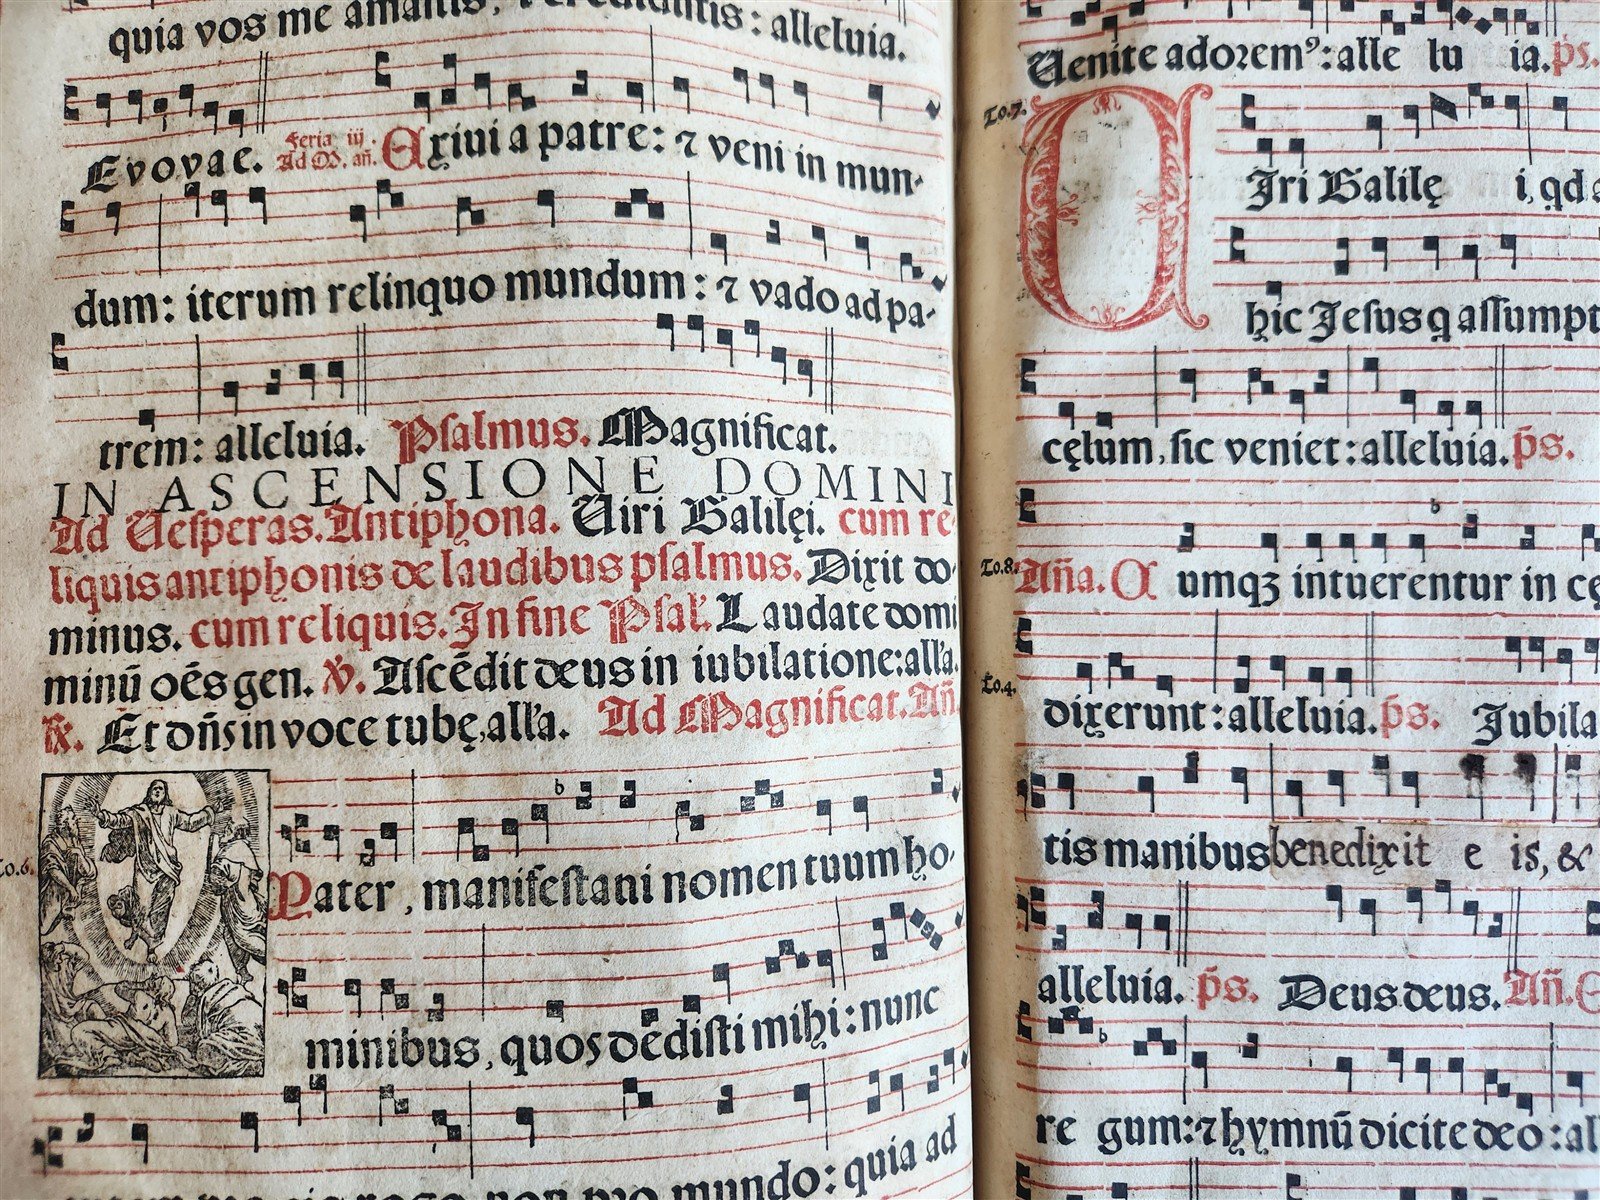 quia vos me amastis, ⁊ credidistis: alleluia.
Evovae. Feria iij. Ad M. añ. Exivi a patre: ⁊ veni in mun-
dum: iterum relinquo mundum: ⁊ vado ad pa-
trem: alleluia. Psalmus. Magnificat.
IN ASCENSIONE DOMINI
Ad Vesperas. Antiphona. Viri Galilęi. cum re-
liquis antiphonis de laudibus psalmus. Dixit do-
minus. cum reliquis. In fine Psal. Laudate domi
minū oēs gen. ℣. Ascēdit deus in iubilatione: all'a.
℟. Et dñs in voce tubę, all'a. Ad Magnificat. Añ.
To.6.
Pater, manifestani nomen tuum ho-
minibus, quos dedisti mihi: nunc
mundo: quia ad
Venite adorem⁹: alle lu ia. ps.
To.7.
Viri Galilę i, qd a
hic Jesus q assumpt
cęlum, sic veniet: alleluia. p̄s.
To.8. Aña. C umqꝫ intuerentur in cę
To.4.
dixerunt: alleluia. p̄s. Jubila
tis manibus benedixit e is, &
alleluia. p̄s. Deus deus. Añ.
re gum: ⁊ hymnū dicite deo: al